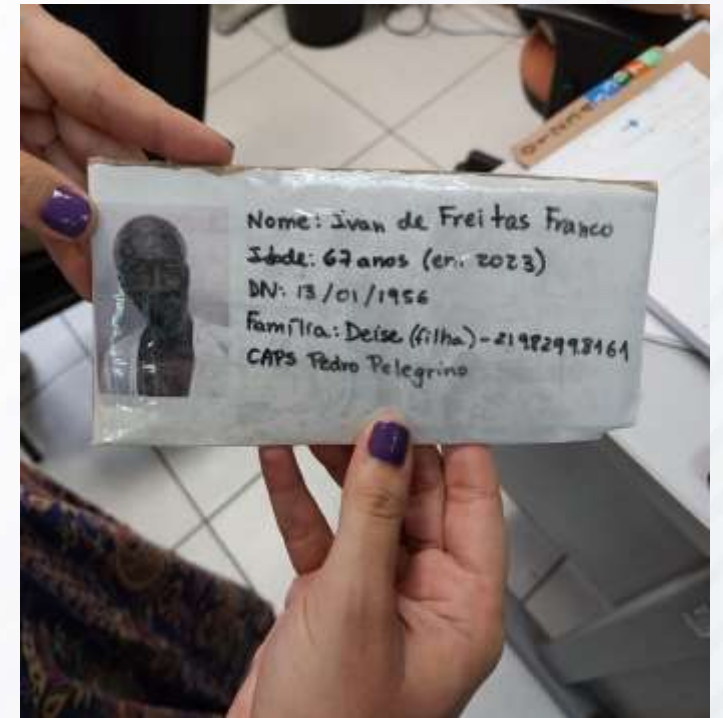 Nome: Ivan de Freitas Franco
Idade: 67 anos (en. 2023)
DN: 13/01/1956
Família: Deise (filha) - 21982998161
CAPS Pedro Pelegrino